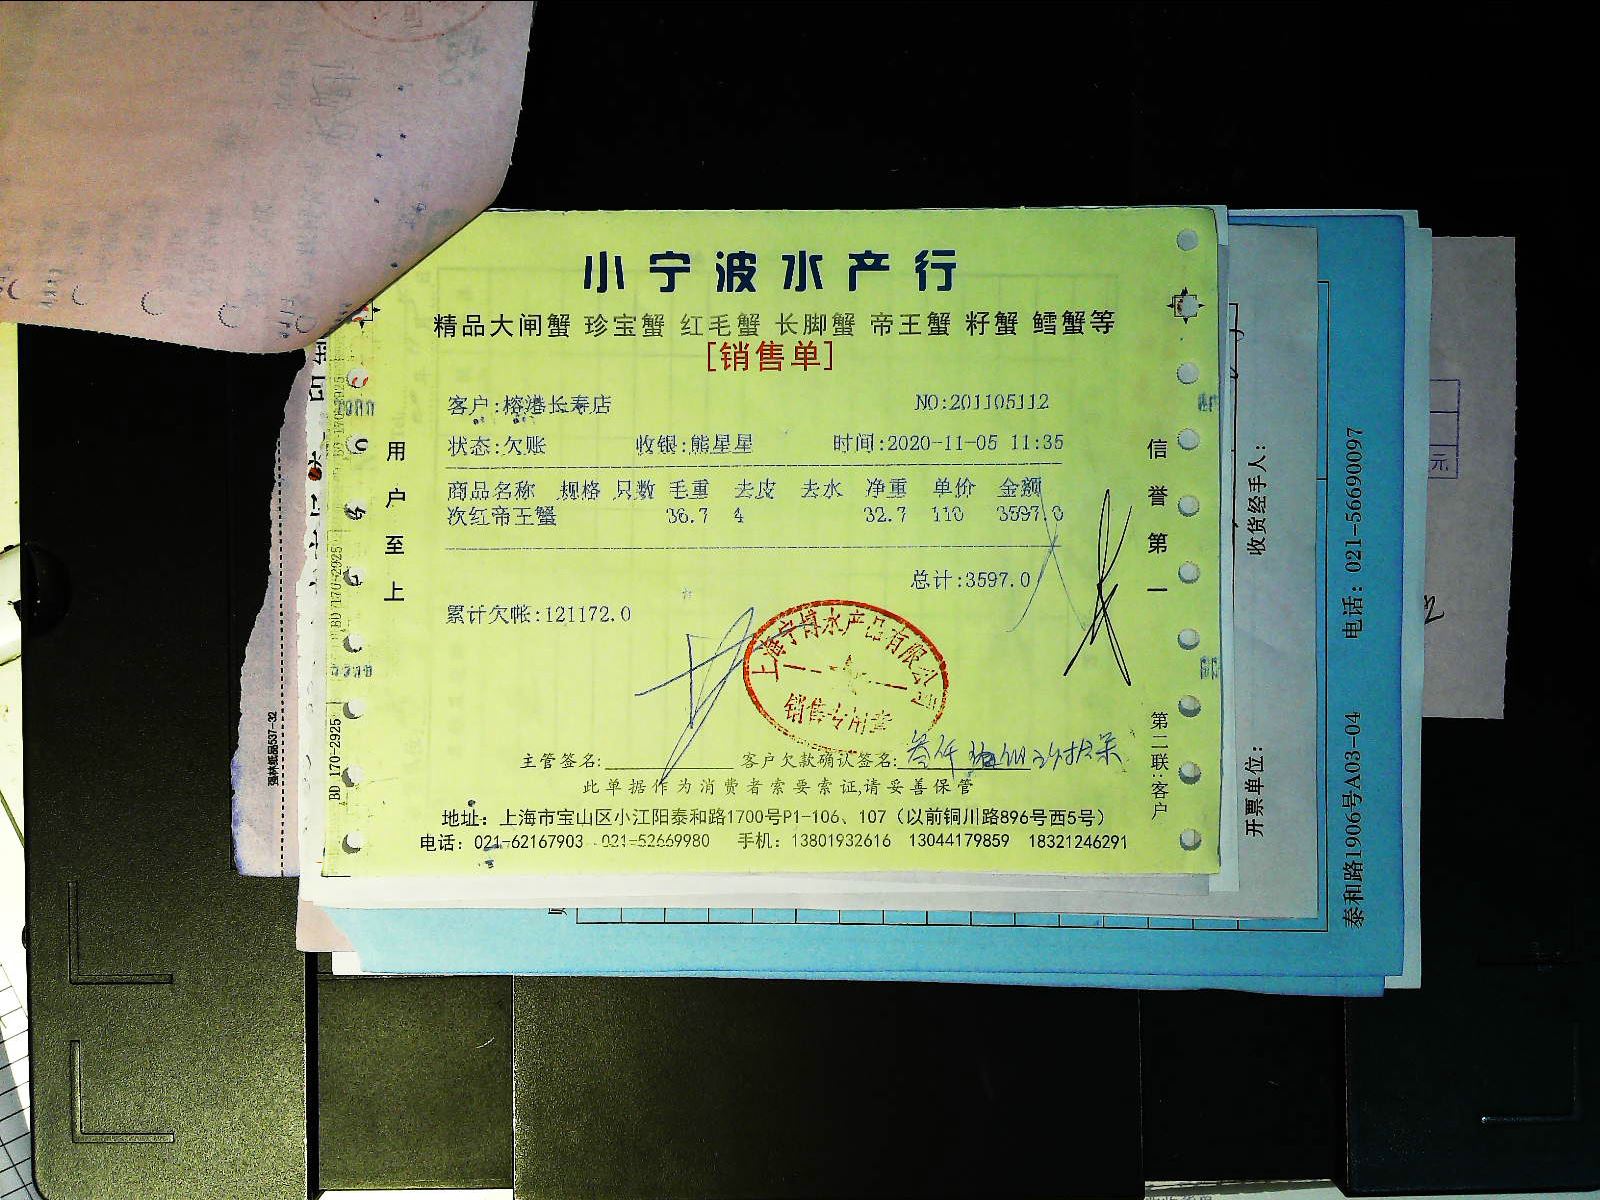 小宁波水产行
精品大闸蟹 珍宝蟹 红毛蟹 长脚蟹 帝王蟹 籽蟹 鳕蟹等
[销售单]
客户:榕港长寿店 NO:201105112
状态:欠账 收银:熊星星 时间:2020-11-05 11:35
商品名称 规格 只数 毛重 去皮 去水 净重 单价 金额
次红帝王蟹 36.7 4 32.7 110 3597.0
总计:3597.0
累计欠帐:121172.0
用户至上
信誉第一
上海宁博水产品有限公司
销售专用章
主管签名: 客户欠款确认签名:
此单据作为消费者索要索证,请妥善保管
地址：上海市宝山区小江阳泰和路1700号P1-106、107（以前铜川路896号西5号）
电话：021-62167903 021-52669980 手机：13801932616 13044179859 18321246291
第二联:客户
BD 170-2925
BD 170-2925
收货经手人:
开票单位:
泰和路1906号A03-04 电话：021-56690097
元